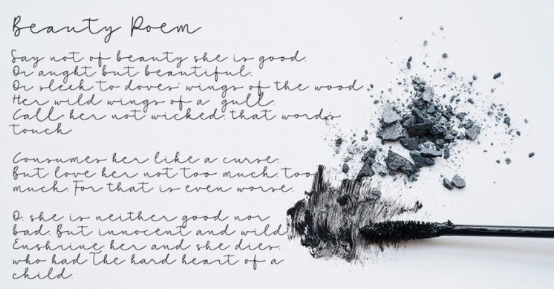 Beauty Poem
Say not of beauty she is good.
Or aught but beautiful.
Or sleek to doves' wings of the wood
Her wild wings of a gull.
Call her not wicked; that word's
touch
Consumes her like a curse.
But love her not too much, too
much, For that is even worse.
O, she is neither good nor
bad, But innocent and wild!
Enshrine her and she dies,
who had The hard heart of a
child.